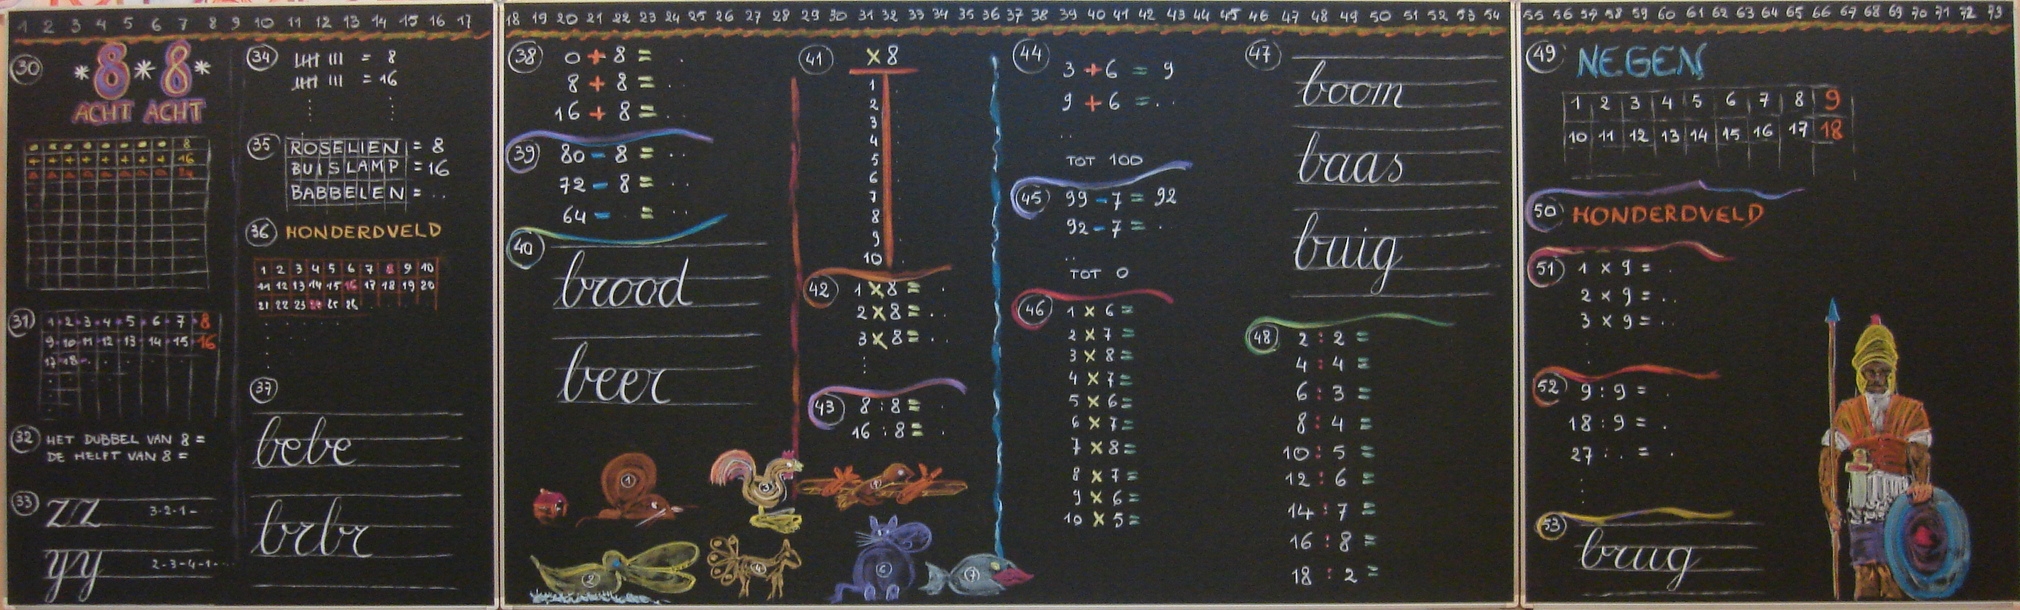 1 2 3 4 5 6 7 8 9 10 11 12 13 14 15 16 17
18 19 20 21 22 23 24 25 26 27 28 29 30 31 32 33 34 35 36 37 38 39 40 41 42 43 44 45 46 47 48 49 50 51 52 53 54
55 56 57 58 59 60 61 62 63 64 65 66 67 68 69 70 71 72 73
30
*8*8*
ACHT ACHT
8
16
24
31
1 2 3 4 5 6 7 8
9 10 11 12 13 14 15 16
17 18
32
HET DUBBEL VAN 8 =
DE HELFT VAN 8 =
33
zz 3-2-1-
yy 2-3-4-1-
34
= 8
= 16
35
ROSELIEN = 8
BUISLAMP = 16
BABBELEN = ..
36
HONDERDVELD
1 2 3 4 5 6 7 8 9 10
11 12 13 14 15 16 17 18 19 20
21 22 23 24 25 26
37
bebe
brbr
38
0 + 8 = .
8 + 8 = ..
16 + 8 = ..
39
80 - 8 = ..
72 - 8 = ..
64 - . = ..
40
brood
beer
41
×8
1
2
3
4
5
6
7
8
9
10
42
1 × 8 = .
2 × 8 = ..
3 × 8 = ..
43
8 : 8 = .
16 : 8 = .
1
3
2
4
7
44
3 + 6 = 9
9 + 6 = ..
..
TOT 100
45
99 - 7 = 92
92 - 7 = .
..
TOT 0
46
1 × 6 =
2 × 7 =
3 × 8 =
4 × 7 =
5 × 6 =
6 × 7 =
7 × 8 =
8 × 7 =
9 × 6 =
10 × 5 =
47
boom
baas
buig
48
2 : 2 =
4 : 4 =
6 : 3 =
8 : 4 =
10 : 5 =
12 : 6 =
14 : 7 =
16 : 8 =
18 : 2 =
49
NEGEN
1 2 3 4 5 6 7 8 9
10 11 12 13 14 15 16 17 18
50
HONDERDVELD
51
1 × 9 = .
2 × 9 = ..
3 × 9 = ..
52
9 : 9 = .
18 : 9 = .
27 : . = .
53
brug